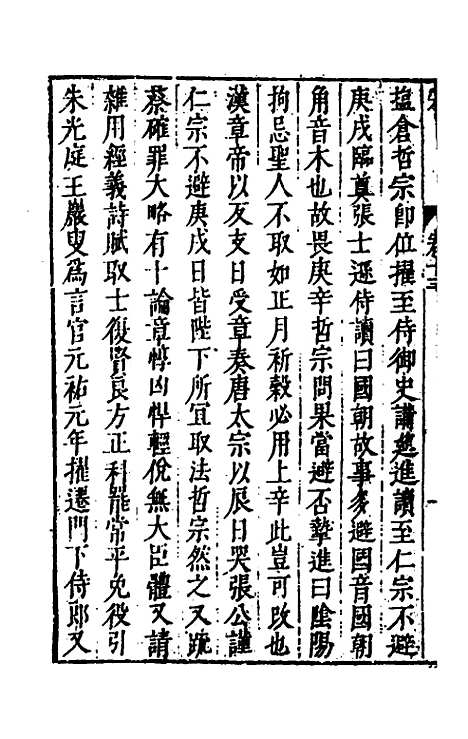 鹽倉哲宗即位擢至侍御史講筵進讀至仁宗不避
庚戌臨奠張士遜侍讀曰國朝故事多避國音國朝
角音木也故畏庚辛哲宗問果當避否摯進曰陰陽
拘忌聖人不取如正月祈穀必用上辛此豈可改也
漢章帝以反支日受章奏唐太宗以辰日哭張公謹
仁宗不避庚戌日皆陛下所宜取法哲宗然之又䟽
蔡確罪大略有十論章惇凶悍輕侻無大臣體又請
雜用經義詩賦取士復賢良方正科罷常平免役引
朱光庭王巖叟爲言官元祐元年擢遷門下侍郎又